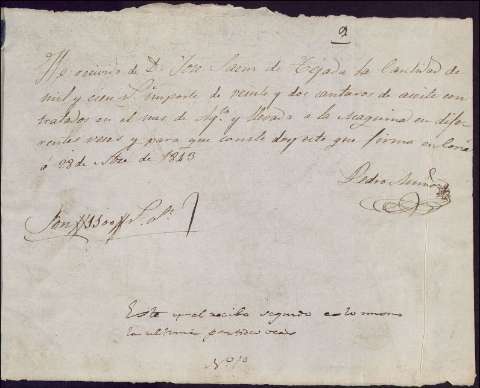 2
He recivido de Dn. Jose Saenz de Tejada la Cantidad de
mil y cien rs. importe de veinte y dos cantaros de aceite con
tratados en el mes de Agto. y llevada a la Maquina en dife
rentes veces y para que conste doy este que firmo en Soria
á 23 de de 1843
Pedro Muñoz
Son 1100 rs. vn.
Este es el recibo segundo
la ultima partida
No. 10